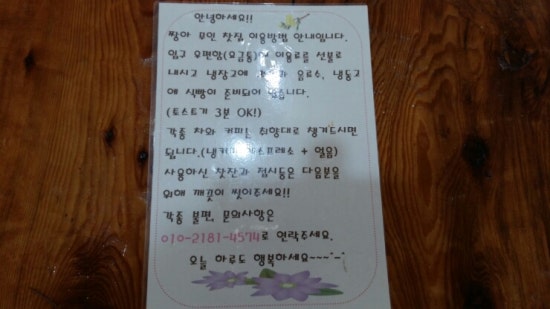 안녕하세요!!
짱아 무인 찻집 이용방법 안내입니다.
입고 우편함(요금통)에 이용료를 선불로
내시고 냉장고에 음료수, 냉동고
에 식빵이 준비되어 있습니다.
(토스트기 3분 OK!)
각종 차와 커피는 취향대로 챙겨드시면
됩니다.(냉커피 에스프레소 + 얼음)
사용하신 찻잔과 접시등은 다음분을
위해 깨끗이 씻어주세요!!
각종 불편, 문의사항은
010-2181-4574로 연락주세요.
오늘 하루도 행복하세요~~~^-^